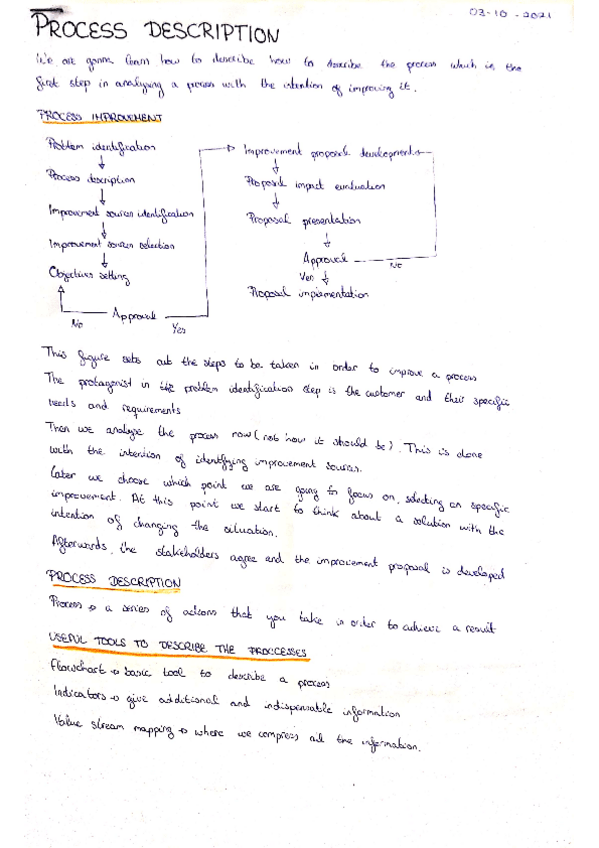 03-10-2021
PROCESS DESCRIPTION
We are gonna learn how to describe how to describe the process which is the
first step in analyzing a process with the intention of improving it.
PROCESS IMPROVEMENT
Problem identification
↓
Process description
↓
Improvement sources identification
↓
Improvement sources selection
↓
Objectives setting
No Approval Yes
Improvement proposals development
↓
Proposal impact evaluation
↓
Proposal presentation
↓
Approval No
Yes ↓
Proposal implementation
This figure sets out the steps to be taken in order to improve a process
The protagonist in the problem identification step is the customer and their specific
needs and requirements
Then we analyse the process now (not how it should be). This is done
with the intention of identifying improvement sources.
Later we choose which point we are going to focus on, selecting an specific
improvement. At this point we start to think about a solution with the
intention of changing the situation.
Afterwards, the stakeholders agree and the improvement proposal is developed
PROCESS DESCRIPTION
Process → a series of actions that you take in order to achieve a result
USEFUL TOOLS TO DESCRIBE THE PROCCESSES
Flowchart → basic tool to describe a process
Indicators → give additional and indispensable information
Value stream mapping → where we compress all the information.